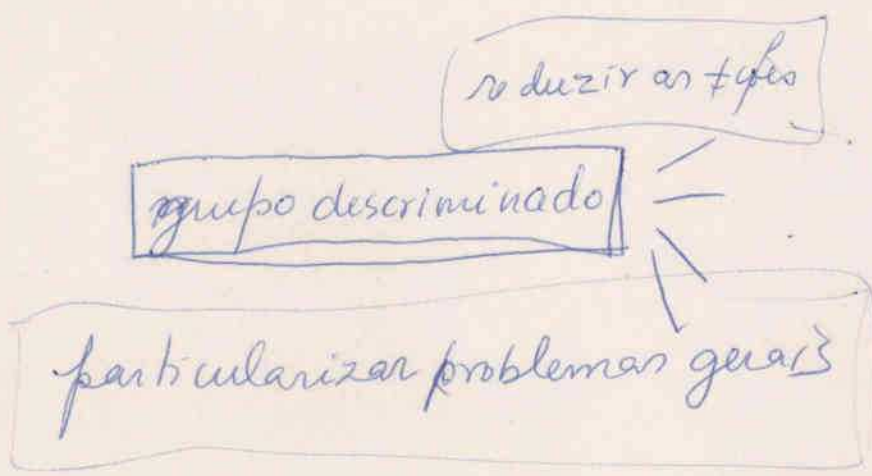 reduzir as ≠ções
grupo descriminado
particularizar problemas gerais